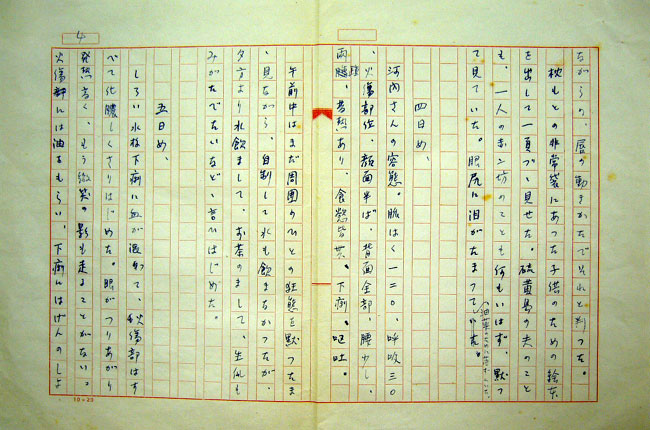 ちがうの、唇の動きかたでそれと判った。
枕もとの非常袋にあった子供のための絵本
を出して一頁づゝ見せた。硫黄島の夫のこと
も、一人の赤ン坊のことも何もいはず、黙つ
て見ていた。眼尻に泪がたまつていた。
四日め、
河内さんの容態。脈はく一二〇、呼吸三〇
、火傷部位、顔面半ば、背面全部、腰少し、
両腿、高熱あり、食慾皆無、下痢、嘔吐。
午前中はまだ周囲のひとの狂態を黙つたま
、見ながら、自制して水も飲まなかつたが、
夕方より水飲まして、お茶のまして、生瓜も
みがたべたいなどと言ひはじめた。
五日め、
しろい水な下痢に血が混つて、火傷部はす
べて化膿しくさりはじめた。眼がつりあがり
発熱高く、もう微笑の影も走ることがない。
火傷部には油をもらい、下痢にはげんのしよ
4
10×20